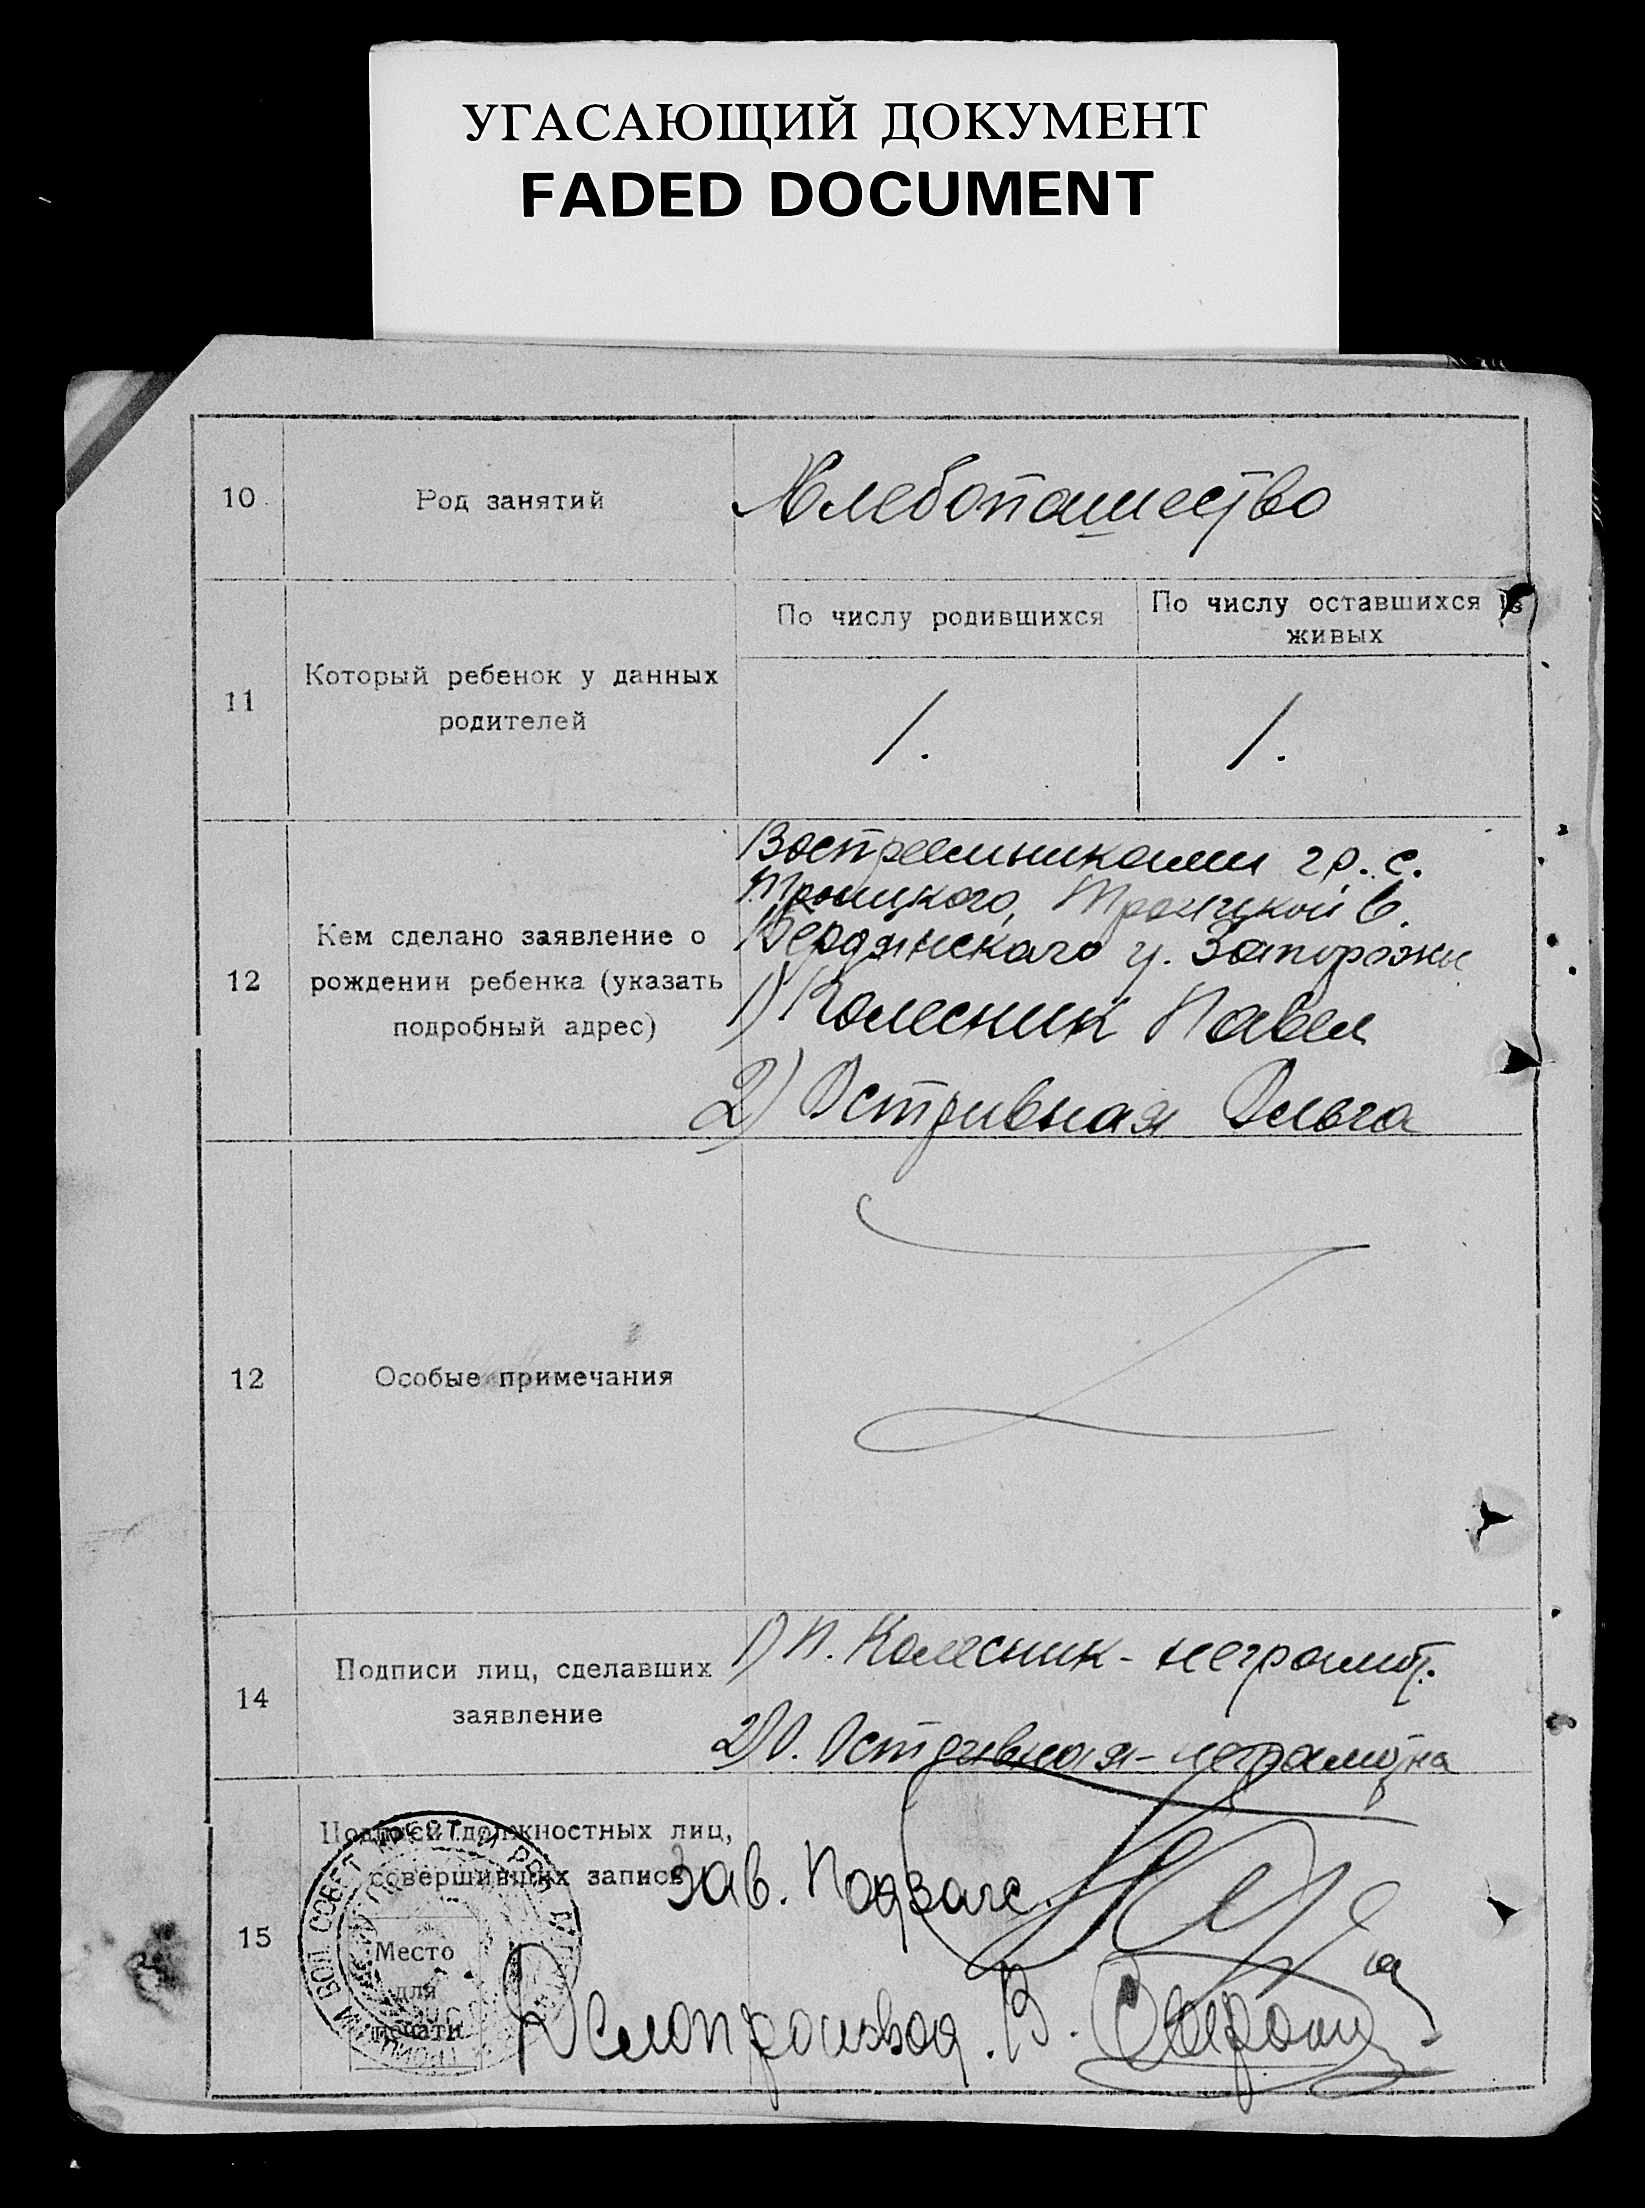 УГАСАЮЩИЙ ДОКУМЕНТ
FADED DOCUMENT
10 Род занятий Хлебопашество
11 Который ребенок у данных родителей
По числу родившихся
По числу оставшихся в живых
1. 1.
12 Кем сделано заявление о
рождении ребенка (указать
подробный адрес)
Восприемниками гр. с.
Троицкого, Троицкой в.
Бердянского у. Запорожск
1) Колесник Павел
2) Остривная Ольга
12 Особые примечания
14 Подписи лиц, сделавших
заявление
1) П. Колесник - неграмот.
2) О. Остривная - неграмотна
15 Подписи должностных лиц,
совершивших запись
Место
для
печати
Зав. Подзагс
Делопроизвод. В.